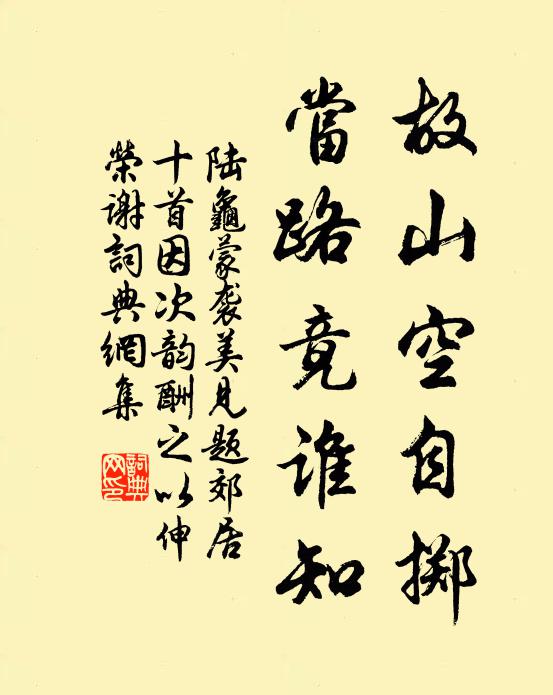 故山空自掷
當路竟谁知
陆龜蒙袭美見题郊居
十首因次韵酬之以伸
榮谢詞典網集
詞典
网印